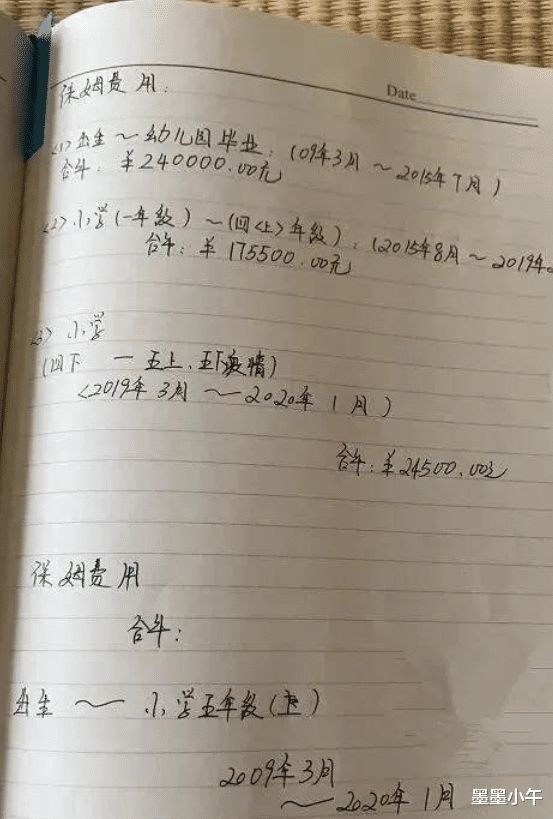 Date
保姆费用:
<1>出生~幼儿园毕业:(09年3月~2015年7月)
合计:¥240000.00元
<2>小学(一年级)~(四<上>年级):(2015年8月~2019年
合计:¥175500.00元
<3>小学
(四下一五上、五下疫情)
<2019年3月~2020年1月)
合计:¥24500.00元
保姆费用
合计:
出生~小学五年级(上)
2009年3月
~2020年1月
墨墨小午